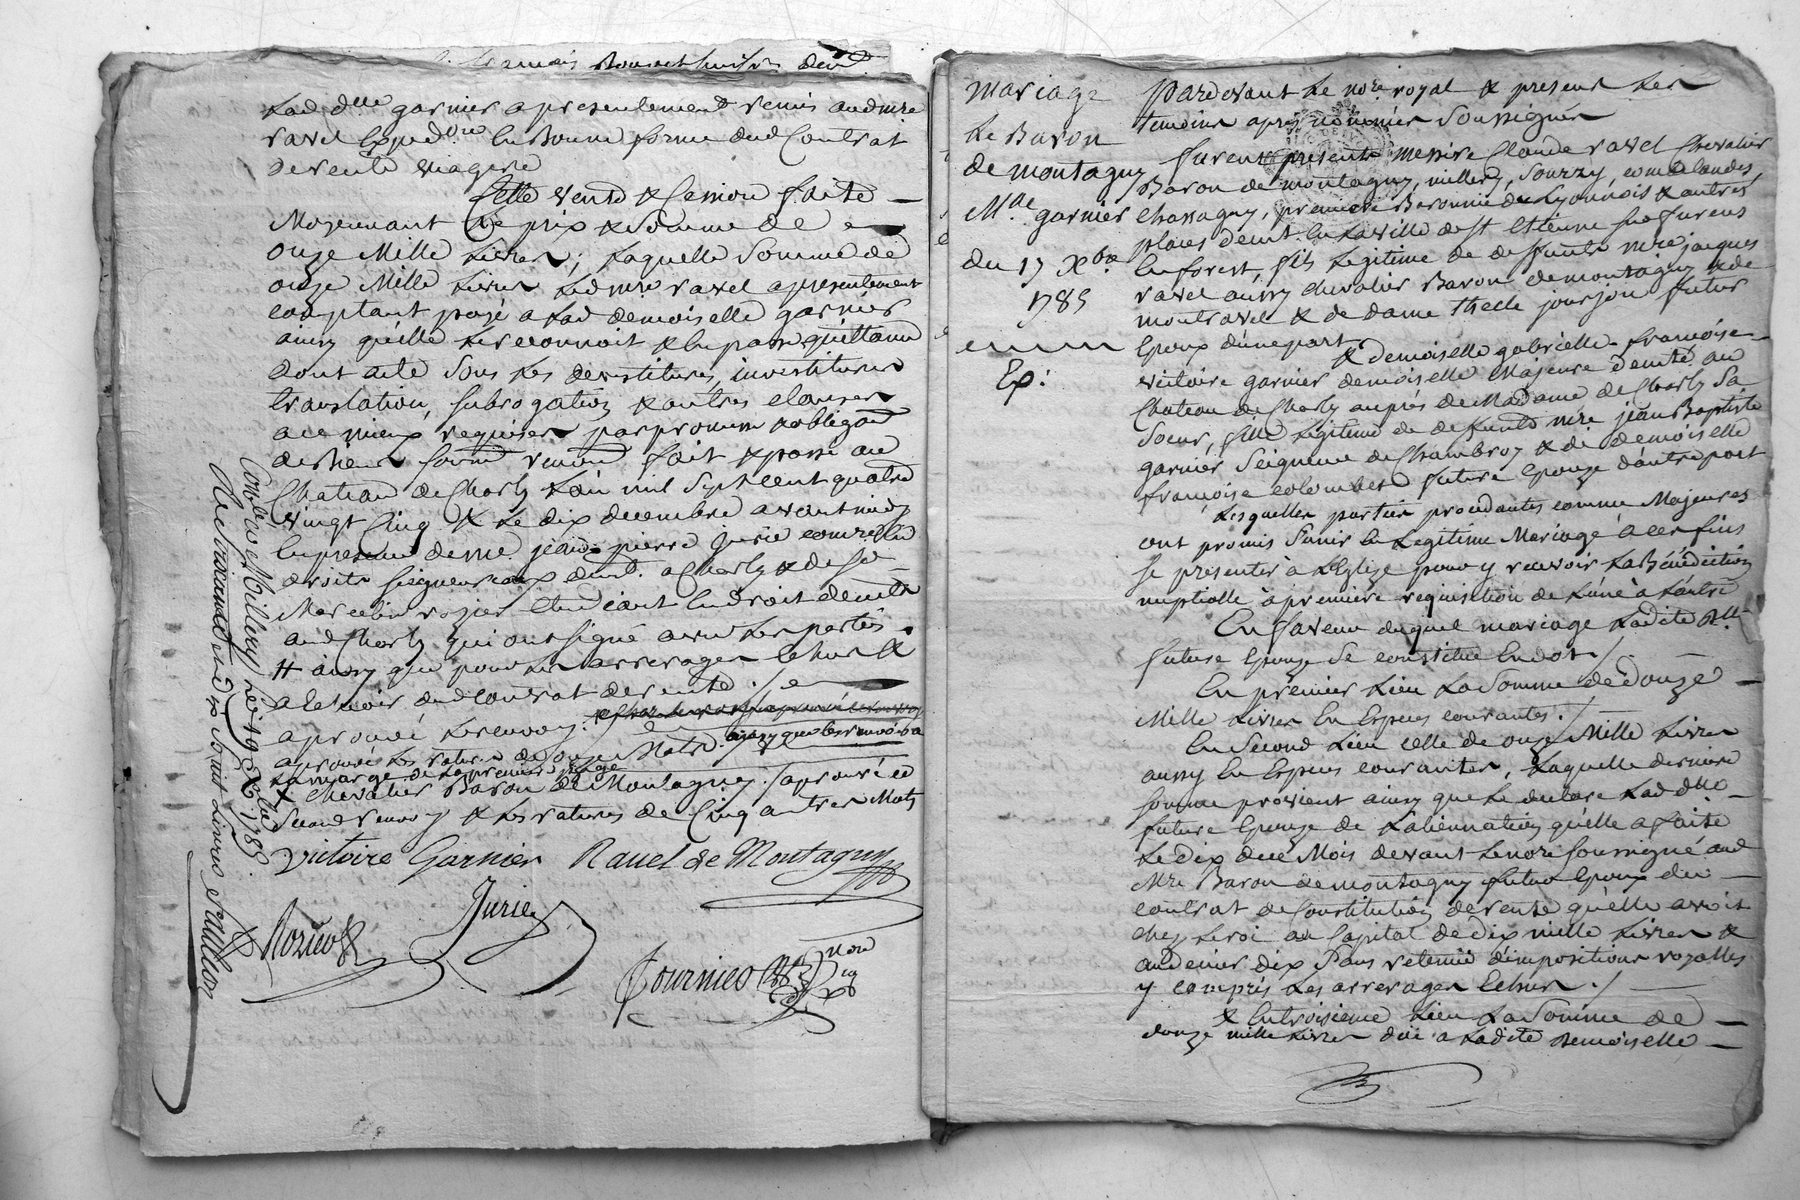 Lad dlle garnier a presentement remis audt mre
ravel Expedon En Bonne forme dud Contrat
de rente viagere
Cette vente & Cession faite
Moyennant Le prix & Somme de
onze Mille Livres; Laquelle Somme de
onze Mille Livres Led mre ravel a presentement
comptant payé a Lad demoiselle garnier
ainsy quélle Le reconnoit & En passe quittance
dont acte Sous Les devestitures, investitures
translation, subrogation & autres clauses
a ce mieux requises par promesse & obligaon
de biens fait & passé au
Chateau de Charly L'an mil Sept Cent quatre
vingt Cinq & Le dix decembre avant midy
En presence de me jean pierre jurie comre En
droits seigneuriaux demt. a Charly & de sr
Marcelin rozier Etudiant En droit demt
aud Charly qui ont signé avec Les parties
# ainsy que pour Les arrerages Echus &
a Echeoir dud Contrat de rente ./.
aprouvé Le renvoy.
ainsy que Le renvoi a
aprouvé Les ratures de notre
La marge de La premiere page
& Chevalier Baron de Montagny ./ aprouvé ce
Second renvoy & Les ratures de Cinq autres Mots
Victoire Garnier Ravel de Montagny
Jurie
Rozier
Fournier nore
Conlé a Millery Le 19 Xbre 1785
du mariage
Mariage
Le Baron
de montagny
Mlle garnier
du 17 Xbre
1785
Ex:
Pardevant Le nore royal & presens Les
temoins aprés nommés Soussignés
furent presents Messire Claude ravel Chevalier
Baron de montagny, millery, Sourzy, Les Landes,
Chassagny, premiere Baronnie du Lyonnois & autres
places demt. En La ville de St Etienne sur furens
En forest, fils Legitime de defunts mre jacques
ravel aussy chevalier Baron de montagny & de
montravel & de dame thecle jourjon futur
Epoux d'une part
& demoiselle gabrielle françoise
victoire garnier demoiselle Majeure demte au
Chateau de Charly auprés de Madame de Charly Sa
Soeur, fille Legitime de defunts mre jean Baptiste
garnier Seigneur de Chambroy & de demoiselle
françoise colombet future Epouze d'autre part
Lesquelles parties procedantes comme Majeures
ont promis S'unir En Legitime Mariage & a ces fins
Se presenter à L'Eglise pour y recevoir La Bénédiction
nuptialle à premiere requisition de L'une à L'autre
En faveur duquel mariage Ladite dlle
future Epouze Se constitue En dot ./.
En premier Lieu La Somme de Douze
Mille Livres En Especes courantes ./.
En Second Lieu celle de onze Mille Livres
aussy En Especes courantes, Laquelle derniere
Somme provient ainsy que Le declare Lad dlle
future Epouze de L'alienation qu'elle a faite
Le dix du ce Mois devant Le nore soussigné aud
Mre Baron de montagny futur Epoux du
contrat de Constitution de rente qu'elle avoit
chez Le roi au Capital de Dix mille Livres &
au denier dix Sans retenue d'impositions royalles
y compris Les arrerages Echus ./.
& En troisieme Lieu La Somme de
douze mille Livres due a Ladite demoiselle